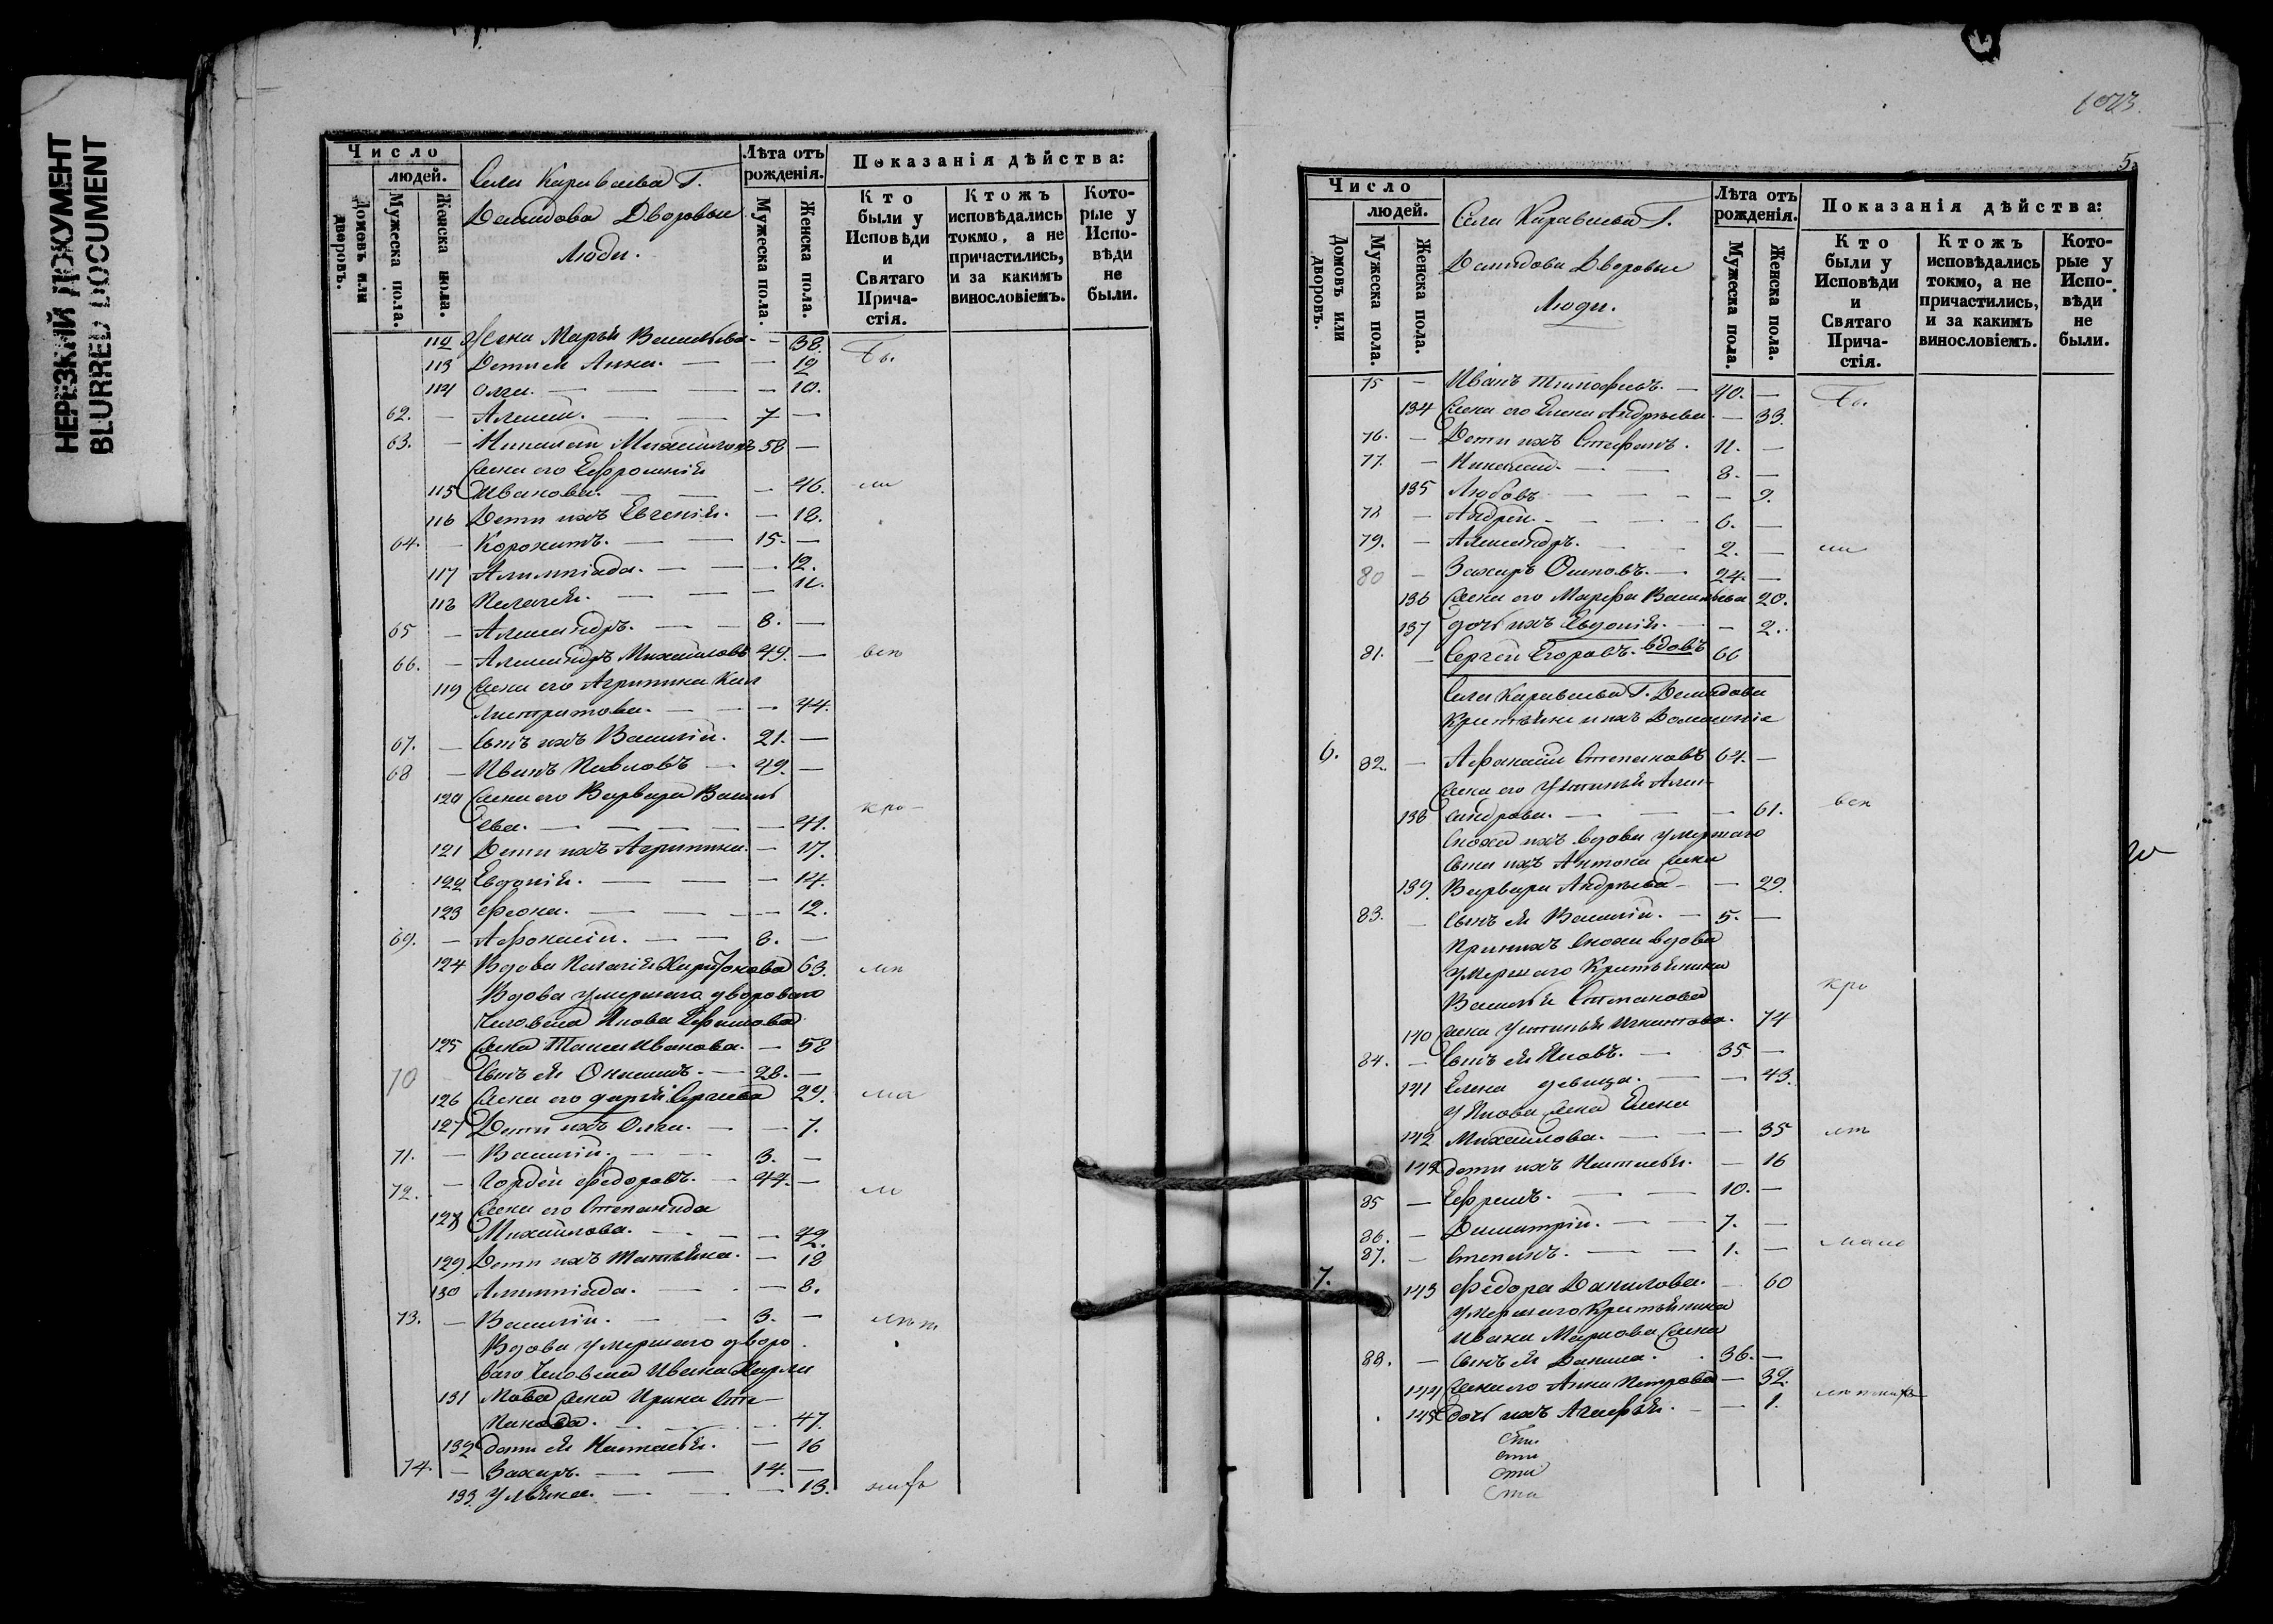 НЕРЕЗКИЙ ДОКУМЕНТ
BLURRED DOCUMENT
Число
людей.
Домовъ или дворовъ.
Мужеска пола.
Женска пола.
Села Караваева Г.
Демидова Дворовые
Люди.
Лѣта отъ рожденія.
Мужеска пола.
Женска пола.
Показанія дѣйства:
Кто были у Исповѣди и Святаго Прича-стія.
Ктожъ исповѣдались токмо, а не причастились, и за какимъ винословіемъ.
Кото-рые у Испо-вѣди не были.
112 Жена Марья Васильева - 38.
113 Дети ея Анна. - 12
114 Ольга. - 10.
62. - Алексей. 7 -
63. - Николай Михайловъ 58 -
Жена его Ефросинія
115 Иванова. - 46.
116 Дети ихъ Евгенія. - 18.
64. - Коронатъ. 15. -
117 Алимпіада. - 12.
118 Пелагея. - 11.
65 - Александръ. 8. -
66. - Александръ Михайловъ 49. -
119 Жена его Агрипина Кал
листратова. - 44.
67. - Сынъ ихъ Василій. 21. -
68 - Иванъ Павловъ 49. -
120 Жена его Варвара Василь
ева. - 41.
121 Дети ихъ Агрипина. - 17.
122 Евдокія. - 14.
123 Феона. - 12.
69. - Афонасій. 8. -
124 Вдова Пелагія Харитонова 63.
Вдова умершаго двороваго
Человека Якова Ефимова
125 Жена Таисья Иванова. - 58
70 - Сынъ ея Онисимъ. 28. -
126 Жена его Дарья Сергеева 29.
127 Дети ихъ Ольга. - 7.
71. - Василій. 3. -
72. - Гордей Федоровъ. 44. -
128 Жена его Степанида
Михайлова. - 42.
129. Дети ихъ Татьяна. - 18
130 Алимпіада. - 8.
73. - Василій. 3. -
Вдова умершаго дворо
ваго Человека Ивана
131 Жена Ирина Сте
панова. - 47.
132 Дети ея Настасья. - 16
74. - Захаръ. 14. -
133. Ульяна. - 13.
1073.
5.
Число
людей.
Домовъ или дворовъ.
Мужеска пола.
Женска пола.
Села Караваева Г.
Демидова Дворовые
Люди.
Лѣта отъ рожденія.
Мужеска пола.
Женска пола.
Показанія дѣйства:
Кто были у Исповѣди и Святаго Прича-стія.
Ктожъ исповѣдались токмо, а не причастились, и за какимъ винословіемъ.
Кото-рые у Испо-вѣди не были.
75 - Иванъ Тимофеевъ. 40. -
134 Жена его Елена Андреева - 33.
76. - Дети ихъ Стефанъ. 11. -
77. - Николай. 8. -
135 Любовь - 9.
78 - Андрей. 6. -
79. - Александръ. 2. -
80 - Захаръ Осиповъ. 24. -
136 Жена его Марфа Васильева 20.
137 Дочь ихъ Евдокія. - 2.
81. - Сергей Егоровъ. вдовъ 66
Села Караваева Г. Демидова
Крестьяне и ихъ Домашніе
6. 82. - Афанасій Степановъ 64. -
Жена его Устинья Алек-
138 сандрова. - 61.
Сноха ихъ вдова умершаго
Сына ихъ Антона Жена
139. Варвара Андреева - 29.
83. - Сынъ ея Василій. 5. -
При нихъ Сноха вдова
умершаго Крестьянина
Василья Степанова
140 Жена Устинья Игнатова. 74
84. - Сынъ ея Яковъ. 35 -
141 Елена девица. - 43.
У Якова Жена Елена
142 Михайлова. - 35
142 Дети ихъ Настасья. - 16
85 - Ефремъ. 10. -
86. - Димитрій. 7. -
87. - Степанъ. 1. -
7. 143 Федора Данилова. - 60
умершаго Крестьянина
Ивана Маркова Жена
88. - Сынъ ея Данила. 36. -
144 Жена его Анна Петрова - 32.
145 Дочь ихъ Агафья. - 1.